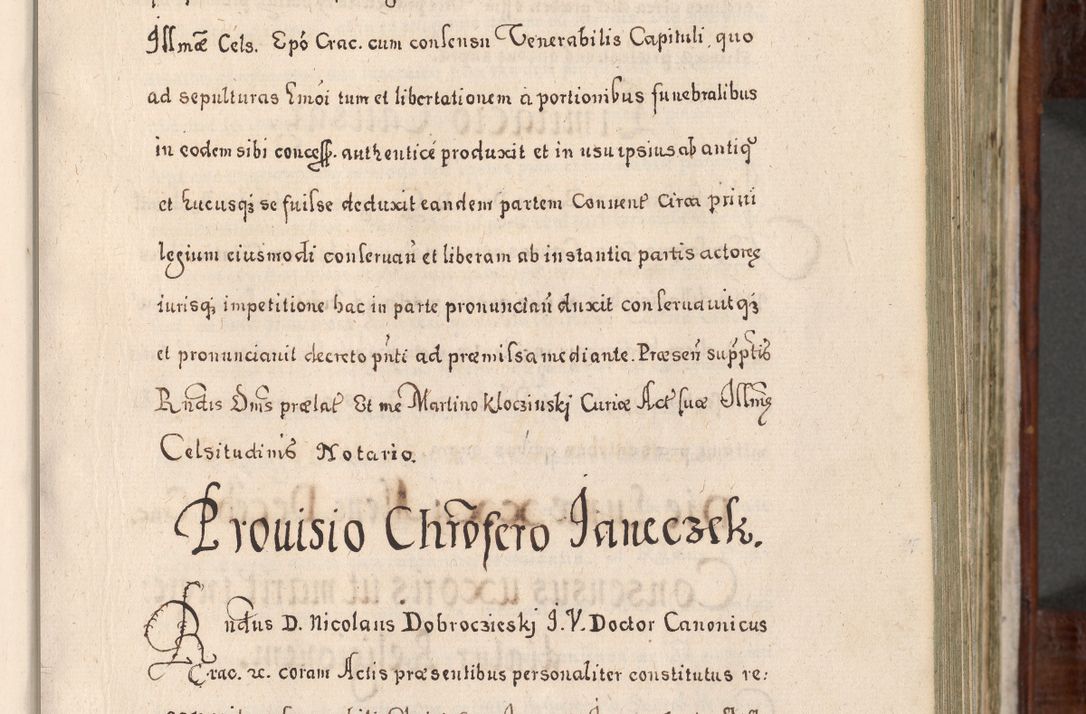 Illmæ Cels. Epō Crac. cum consensu Venerabilis Capituli, quo
ad sepulturas hmōi tum et libertationem à portionibus funebralibus
in eodem sibi concess. authenticé produxit et in usu ipsius ab antiq̃
et hucusq; se fuisse deduxit eandem partem Conuent circa priui
legium eiusmodi conseruañ et liberam ab instantia partis actoreę
iurisq; impetitione hac in parte pronunciañ duxit conseruauitq;
et pronunciauit decreto pñti ad præmissa mediante. Præseñ supptis
Rndis Dnis prælat Et me Martino Kłoczinskj Curiæ Act suæ Illmę
Celsitudinis Notario.
Prouisio Chrōfero Janeczek.
Rndus D. Nicolaus Dobroczieskj I.V. Doctor Canonicus
Crac. &c. coram Actis præsentibus personaliter constitutus re: